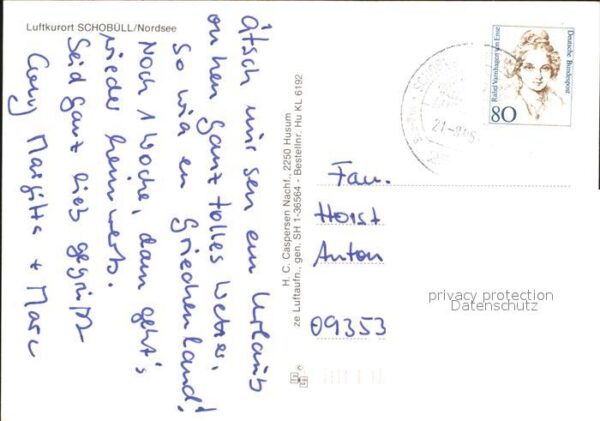 Luftkurort SCHOBÜLL/Nordsee
Ätsch mir sen em Urlaub
on hen ganz tolles Wetter,
so wia en Griechenland!
Noch 1 Woche, dann geht's
wieder heimwerts.
Seid ganz lieb gegrüßt
Margitta + Marc
H. C. Caspersen Nachf., 2250 Husum
ze Luftaufn., gen. SH 1-36564 - Bestellnr. Hu KL 6192
Deutsche Bundespost
Rahel Varnhagen von Ense
80
Fam.
Horst
Anton
09353
privacy protection
Datenschutz